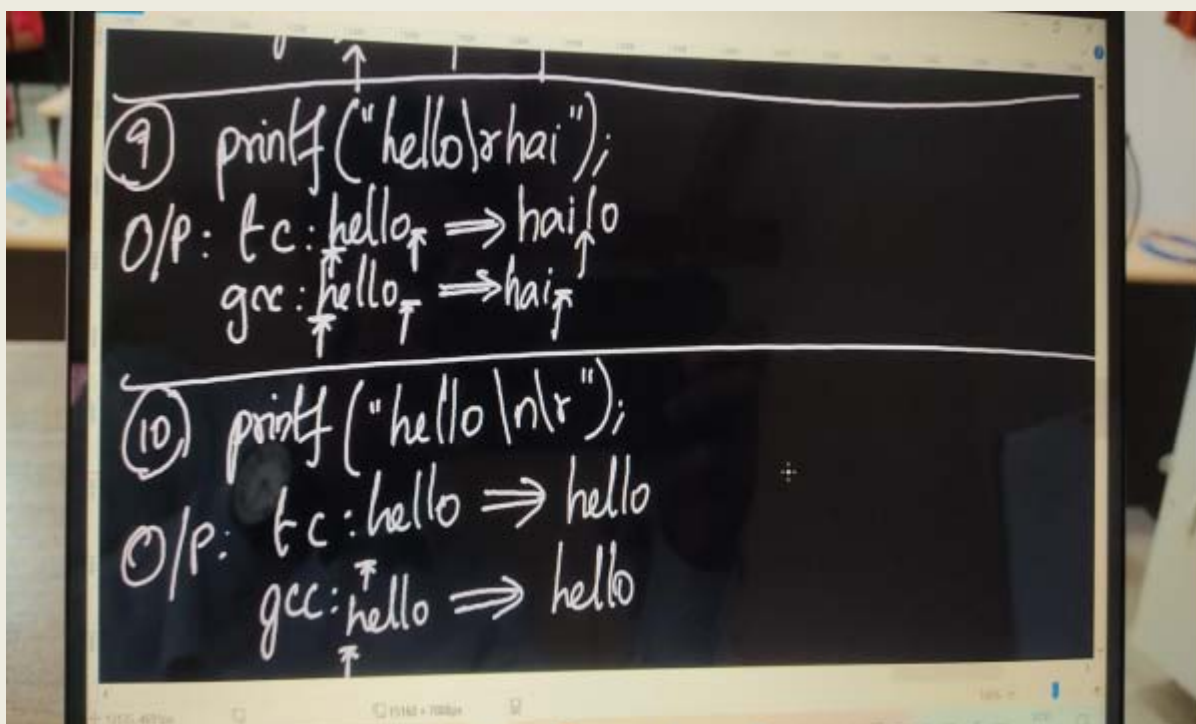 9 printf("hello\rhai");
O/P: tc: hello ⇒ hailo
gcc: hello ⇒ hai
10 printf("hello\n\r");
O/P: tc: hello ⇒ hello
gcc: hello ⇒ hello